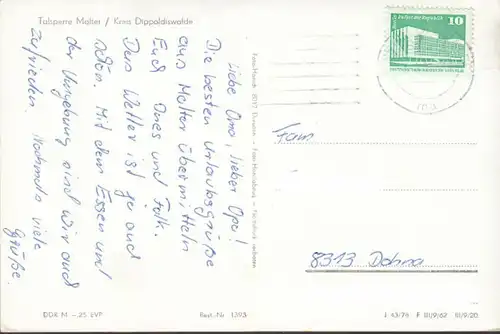 Talsperre Malter / Kreis Dippoldiswalde
Liebe Oma, lieber Opa!
Die besten Urlaubsgrüße
aus Malter übermitteln
Euch Ines und Falk.
Das Wetter ist ja auch
schön. Mit dem Essen und
der Umgebung sind wir auch
zufrieden. Nochmals viele
Grüße.
Foto-Handel
10
Fam
8313 Dohna
DDR M -,25 EVP
Best.-Nr. 1393
J 43/76 F III/9/62 III/9/20